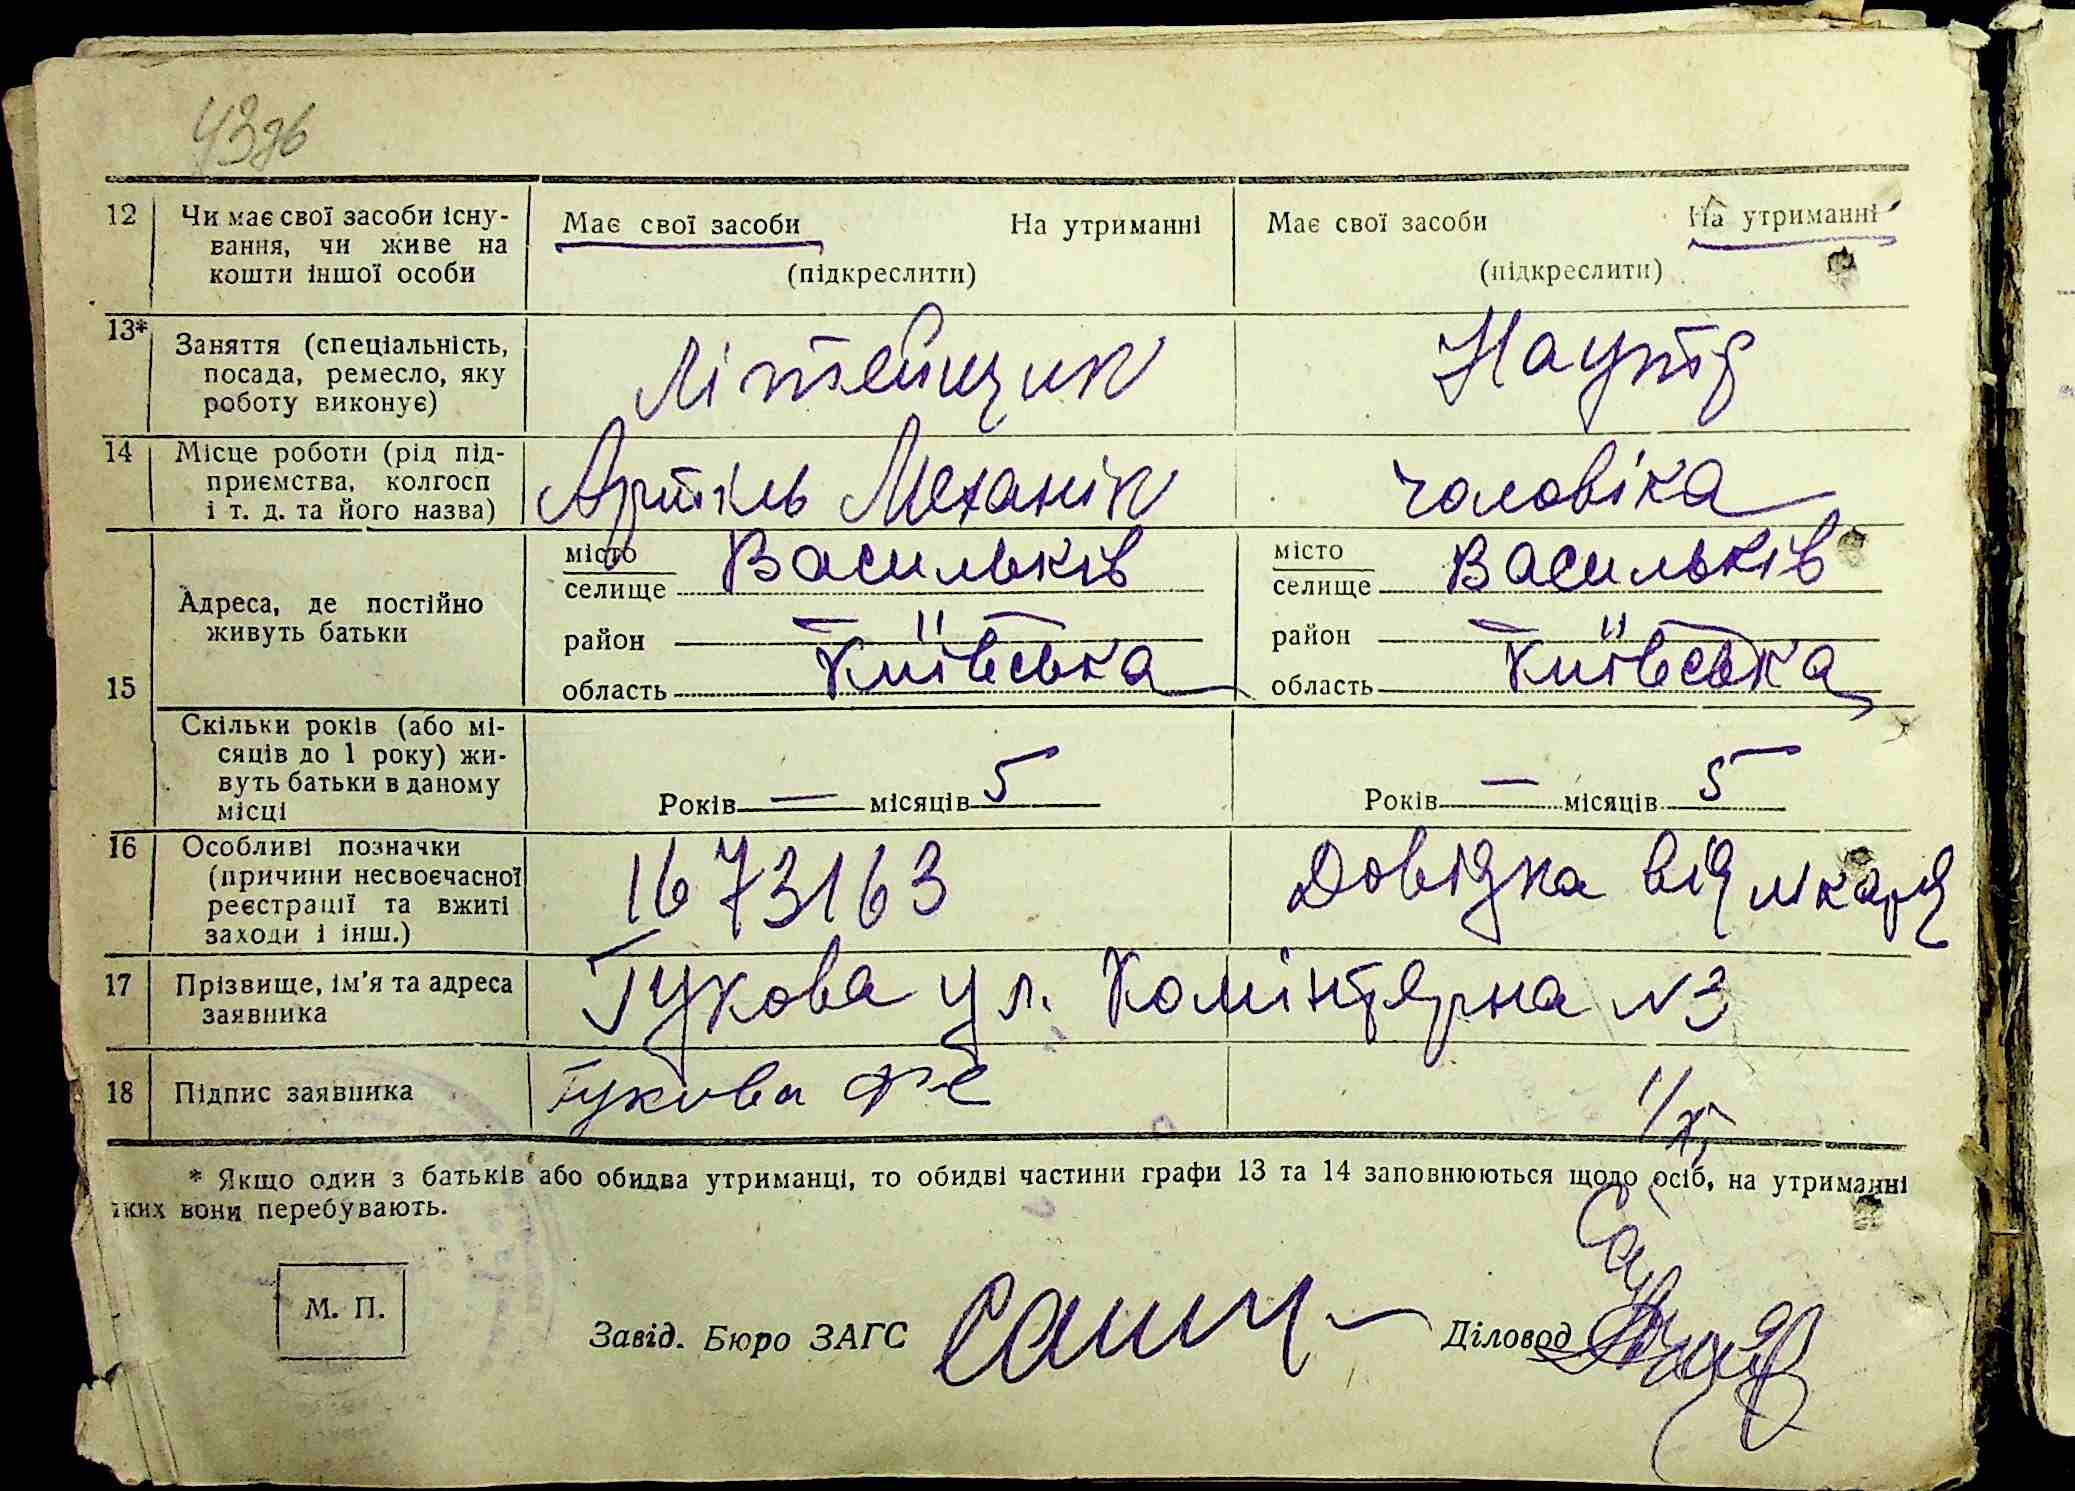 43зв
12 Чи має свої засоби існу- Має свої засоби На утриманні Має свої засоби На утриманні
вання, чи живе на
кошти іншої особи (підкреслити) (підкреслити)
13* Заняття (спеціальність, Літейщик На утр
посада, ремесло, яку
роботу виконує)
14 Місце роботи (рід під- Артіль Механік чоловіка
приємства, колгосп
і т. д. та його назва)
15 Адреса, де постійно місто Васильків місто Васильків
живуть батьки селище селище
район — " — район — " —
область Київська область Київська
Скільки років (або мі-
сяців до 1 року) жи-
вуть батьки в даному
місці Років — місяців 5 Років — місяців 5
16 Особливі позначки 1673163 Довідка від лікаря
(причини несвоєчасної
реєстрації та вжиті
заходи і інш.)
17 Прізвище, ім'я та адреса Гукова ул. Комінтярна N3
заявника
18 Підпис заявника Гукова
* Якщо один з батьків або обидва утриманці, то обидві частини графи 13 та 14 заповнюються щодо осіб, на утриманні
яких вони перебувають.
М. П.
Завід. Бюро ЗАГС Діловод